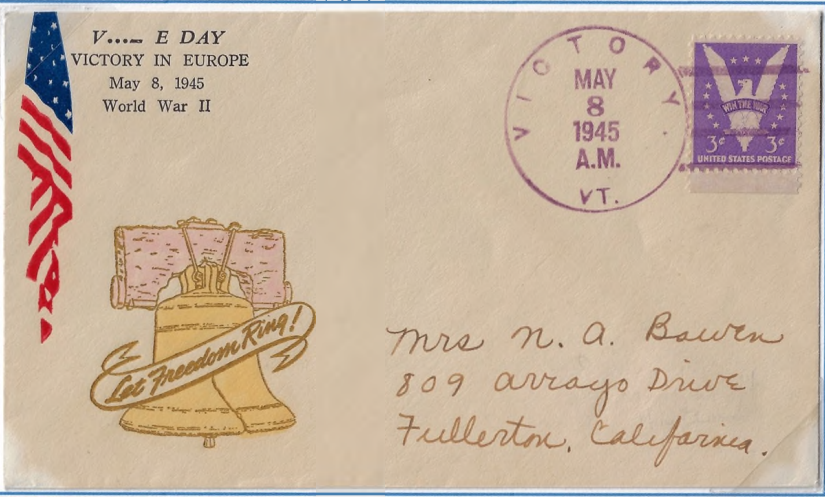 V...— E DAY
VICTORY IN EUROPE
May 8, 1945
World War II
VICTORY
MAY
8
1945
A.M.
VT.
WIN THE WAR
3¢ 3¢
UNITED STATES POSTAGE
Let Freedom Ring!
Mrs N. A. Bowen
809 Arroyo Drive
Fullerton, California.